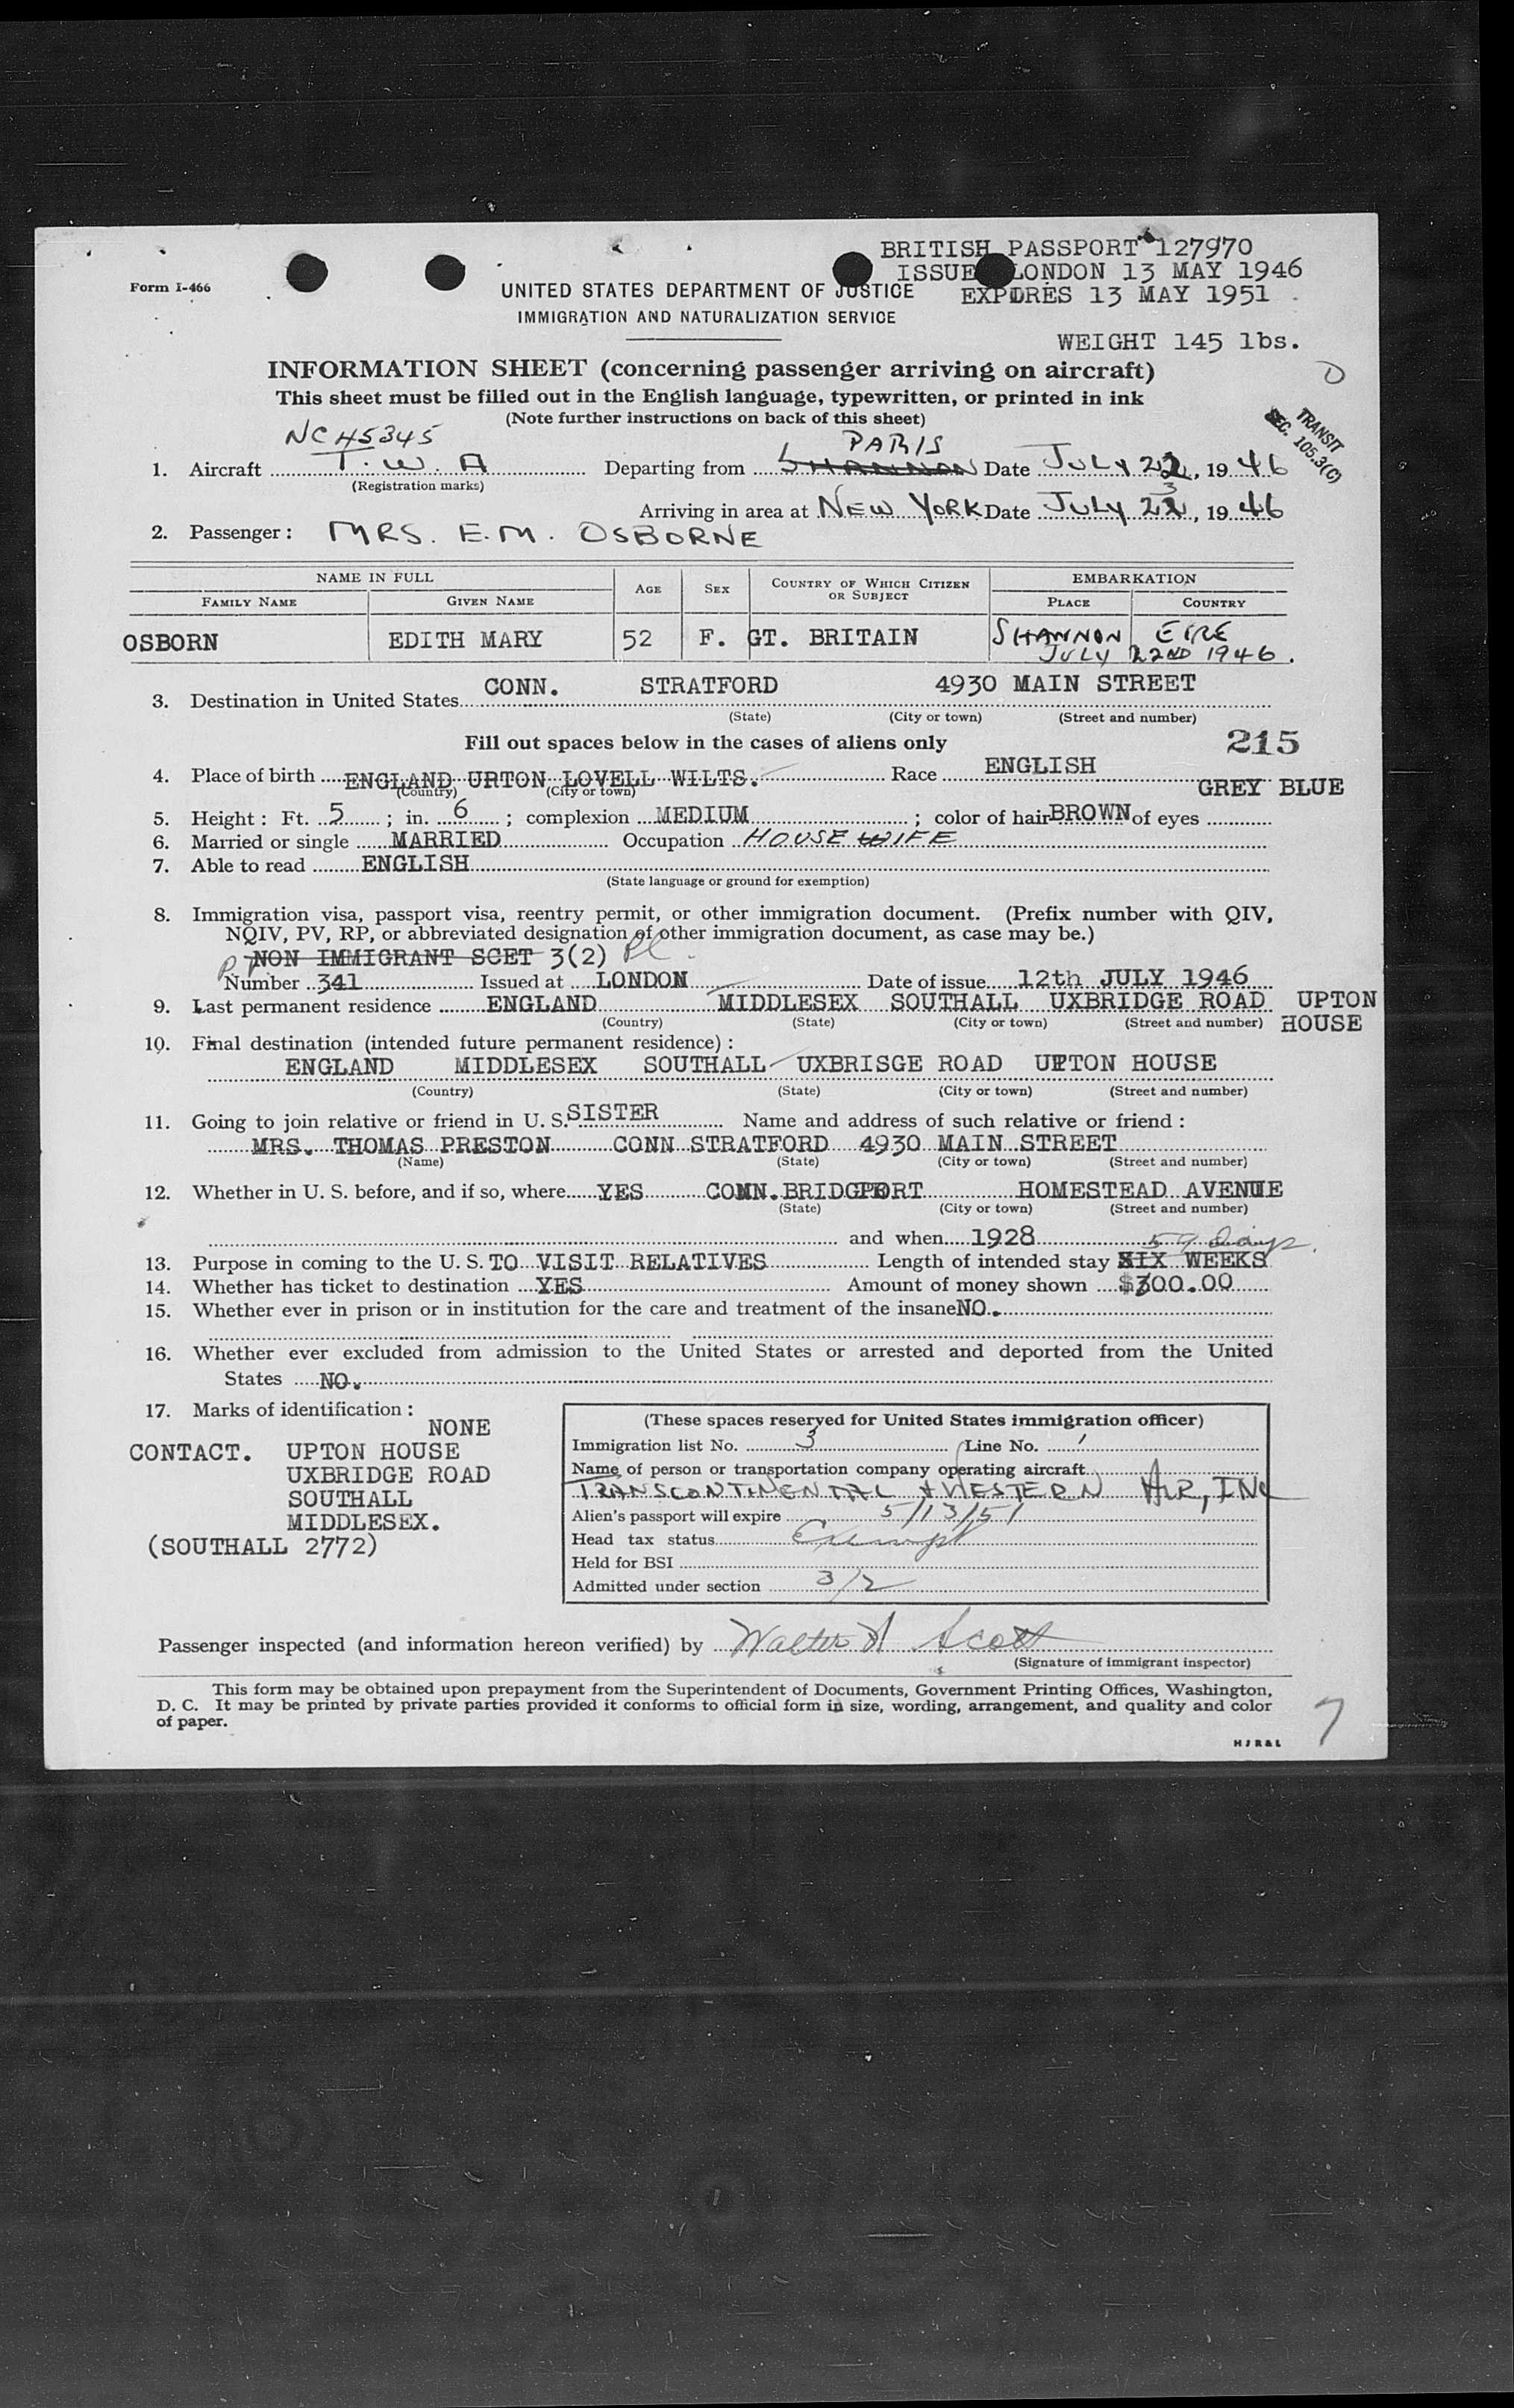 BRITISH PASSPORT 127970
ISSUE LONDON 13 MAY 1946
EXPIRES 13 MAY 1951
Form I-466
UNITED STATES DEPARTMENT OF JUSTICE
IMMIGRATION AND NATURALIZATION SERVICE
WEIGHT 145 lbs.
INFORMATION SHEET (concerning passenger arriving on aircraft)
This sheet must be filled out in the English language, typewritten, or printed in ink
(Note further instructions on back of this sheet)
TRANSIT
SEC. 105.3(C)
NC 45345 PARIS
1. Aircraft T. W. A Departing from SHANNON Date JULY 22, 1946
(Registration marks)
Arriving in area at NEW YORK Date JULY 23, 1946
2. Passenger: MRS. E.M. OSBORNE
NAME IN FULL AGE SEX COUNTRY OF WHICH CITIZEN OR SUBJECT EMBARKATION
FAMILY NAME GIVEN NAME PLACE COUNTRY
OSBORN EDITH MARY 52 F. GT. BRITAIN SHANNON EIRE
JULY 22ND 1946.
3. Destination in United States CONN. STRATFORD 4930 MAIN STREET
(State) (City or town) (Street and number)
Fill out spaces below in the cases of aliens only 215
4. Place of birth ENGLAND UPTON LOVELL WILTS. Race ENGLISH
(Country) (City or town) GREY BLUE
5. Height: Ft. 5; in. 6; complexion MEDIUM; color of hair BROWN of eyes
6. Married or single MARRIED Occupation HOUSE WIFE
7. Able to read ENGLISH
(State language or ground for exemption)
8. Immigration visa, passport visa, reentry permit, or other immigration document. (Prefix number with QIV,
NQIV, PV, RP, or abbreviated designation of other immigration document, as case may be.)
NON IMMIGRANT SCET 3(2)
Number 341 Issued at LONDON Date of issue 12th JULY 1946
9. Last permanent residence ENGLAND MIDDLESEX SOUTHALL UXBRIDGE ROAD UPTON
(Country) (State) (City or town) (Street and number) HOUSE
10. Final destination (intended future permanent residence):
ENGLAND MIDDLESEX SOUTHALL UXBRISGE ROAD UPTON HOUSE
(Country) (State) (City or town) (Street and number)
11. Going to join relative or friend in U. S. SISTER Name and address of such relative or friend:
MRS. THOMAS PRESTON CONN STRATFORD 4930 MAIN STREET
(Name) (State) (City or town) (Street and number)
12. Whether in U. S. before, and if so, where YES CONN. BRIDGPORT HOMESTEAD AVENUE
(State) (City or town) (Street and number)
and when 1928 59 Days.
13. Purpose in coming to the U. S. TO VISIT RELATIVES Length of intended stay SIX WEEKS
14. Whether has ticket to destination YES Amount of money shown $300.00
15. Whether ever in prison or in institution for the care and treatment of the insane NO.
16. Whether ever excluded from admission to the United States or arrested and deported from the United
States NO.
17. Marks of identification:
NONE
CONTACT. UPTON HOUSE
UXBRIDGE ROAD
SOUTHALL
MIDDLESEX.
(SOUTHALL 2772)
(These spaces reserved for United States immigration officer)
Immigration list No. 3 Line No. 1
Name of person or transportation company operating aircraft
TRANSCONTINENTAL & WESTERN AIR, INC
Alien's passport will expire 5/13/51
Head tax status Exempt
Held for BSI
Admitted under section 3/2
Passenger inspected (and information hereon verified) by Walter H Scott
(Signature of immigrant inspector)
This form may be obtained upon prepayment from the Superintendent of Documents, Government Printing Offices, Washington,
D. C. It may be printed by private parties provided it conforms to official form in size, wording, arrangement, and quality and color
of paper.
7
H J R & L